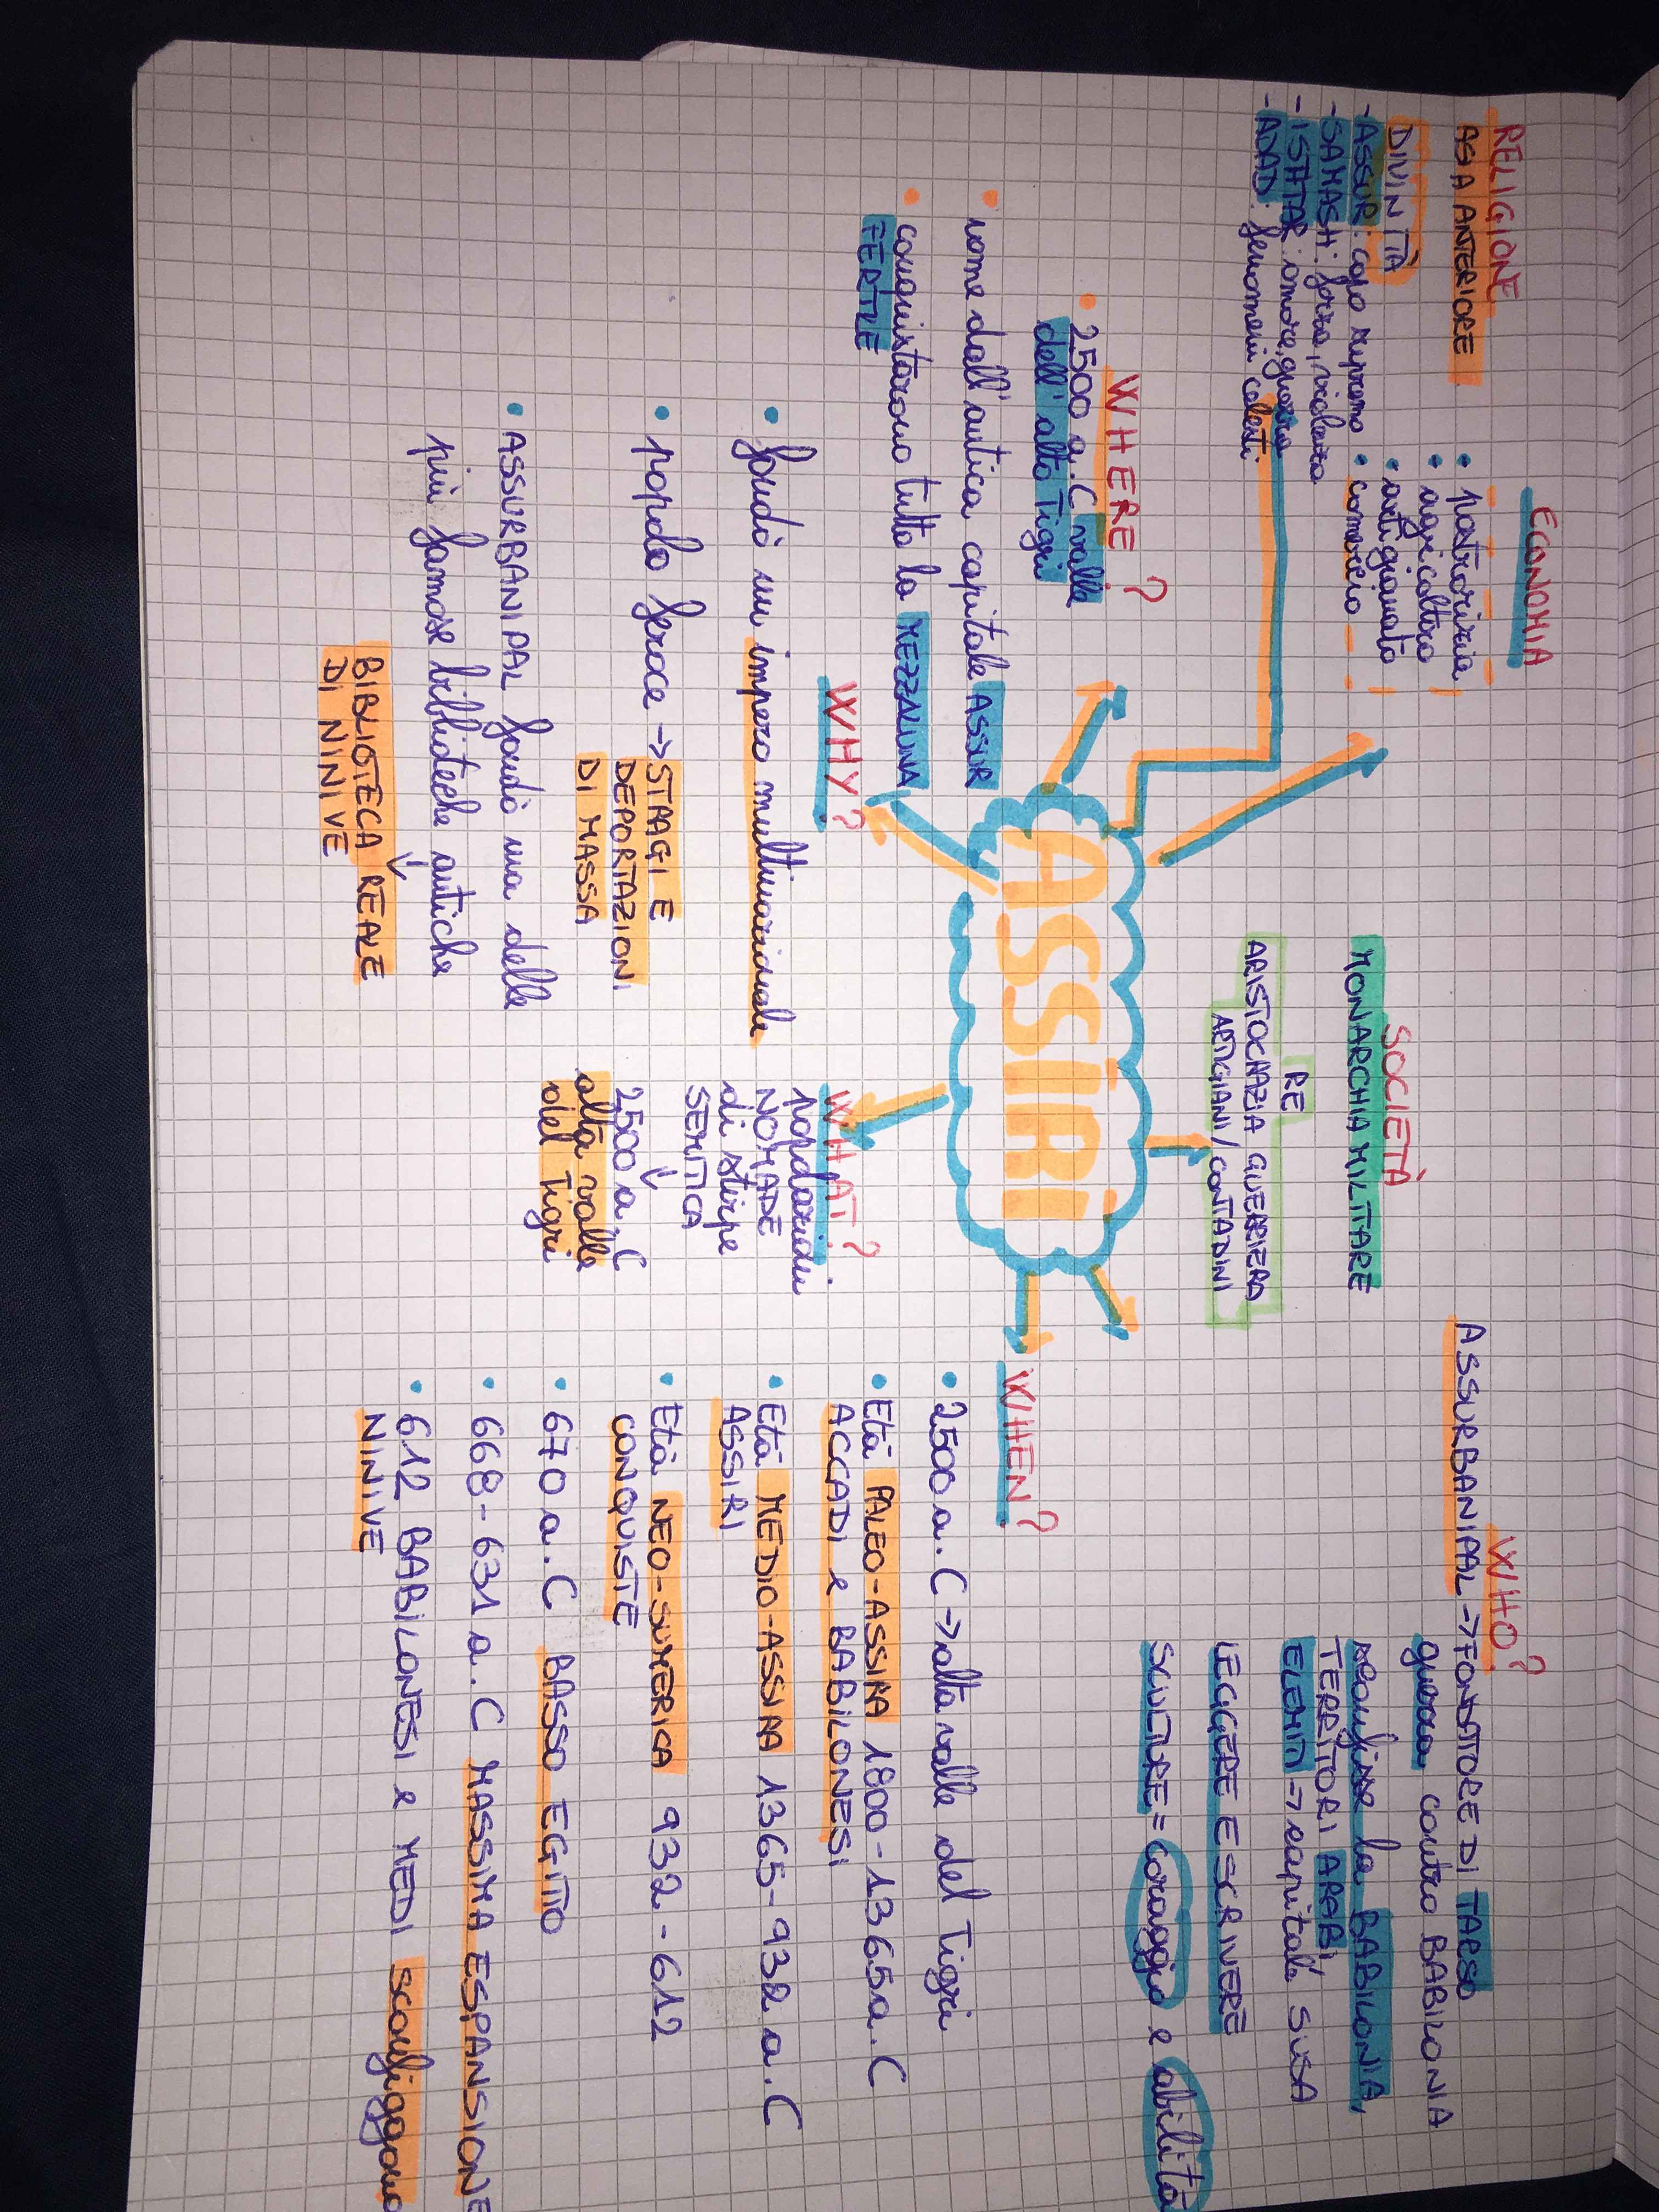 RELIGIONE
ASIA ANTERIORE
DIVINITÀ
-ASSUR: capo supremo
-SAMASH: forza, violenza
-ISHTAR: amore, guerra
-ADAD: fenomeni celesti
ECONOMIA
• pastorizia
• agricoltura
• artigianato
• commercio
SOCIETÀ
MONARCHIA MILITARE
RE
ARISTOCRAZIA GUERRIERA
ARTIGIANI/CONTADINI
WHO?
ASSURBANIPAL → FONDATORE DI TARSO
guerra contro BABILONIA
sconfisse la BABILONIA,
TERRITORI ARABI,
ELEMITI → capitale SUSA
LEGGERE E SCRIVERE
SCULTURE = coraggio e abilità
ASSIRI
WHERE?
• 2500 a.C valle
dell'alto Tigri
• nome dall'antica capitale ASSUR
• conquistarono tutta la MEZZALUNA
FERTILE
WHY?
• fondò un impero multinazionale
• popolo feroce → STRAGI E
DEPORTAZIONI
DI MASSA
• ASSURBANIPAL fondò una delle
più famose biblioteche antiche
↓
BIBLIOTECA REALE
DI NINIVE
WHAT?
popolazioni
NOMADE
di stirpe
SEMITICA
↓
2500 a.C
alta valle
del Tigri
WHEN?
• 2500 a.C → alta valle del Tigri
• Età PALEO-ASSIRA 1800-1365 a.C
ACCADI e BABILONESI
• Età MEDIO-ASSIRA 1365-932 a.C
ASSIRI
• Età NEO-SUMERICA 932-612
CONQUISTE
• 670 a.C BASSO EGITTO
• 668-631 a.C MASSIMA ESPANSIONE
• 612 BABILONESI e MEDI sconfiggono
NINIVE